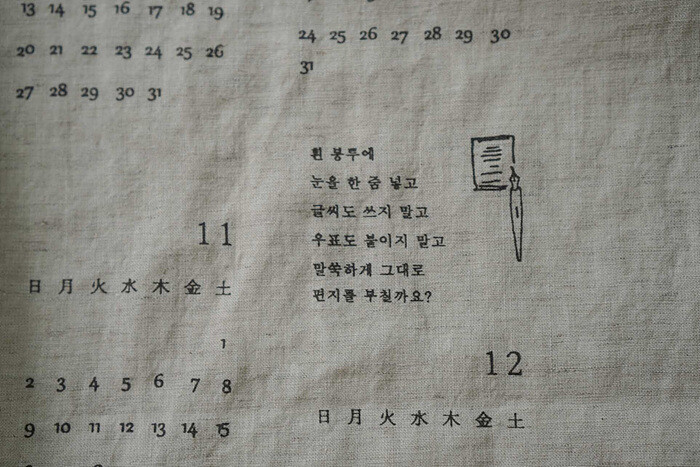 13 14 15 16 17 18 19
20 21 22 23 24 25 26
27 28 29 30 31
24 25 26 27 28 29 30
31
흰 봉투에
눈을 한 줌 넣고
글씨도 쓰지 말고
우표도 붙이지 말고
말쑥하게 그대로
편지를 부칠까요?
11
日 月 火 水 木 金 土
1
2 3 4 5 6 7 8
9 10 11 12 13 14 15
12
日 月 火 水 木 金 土